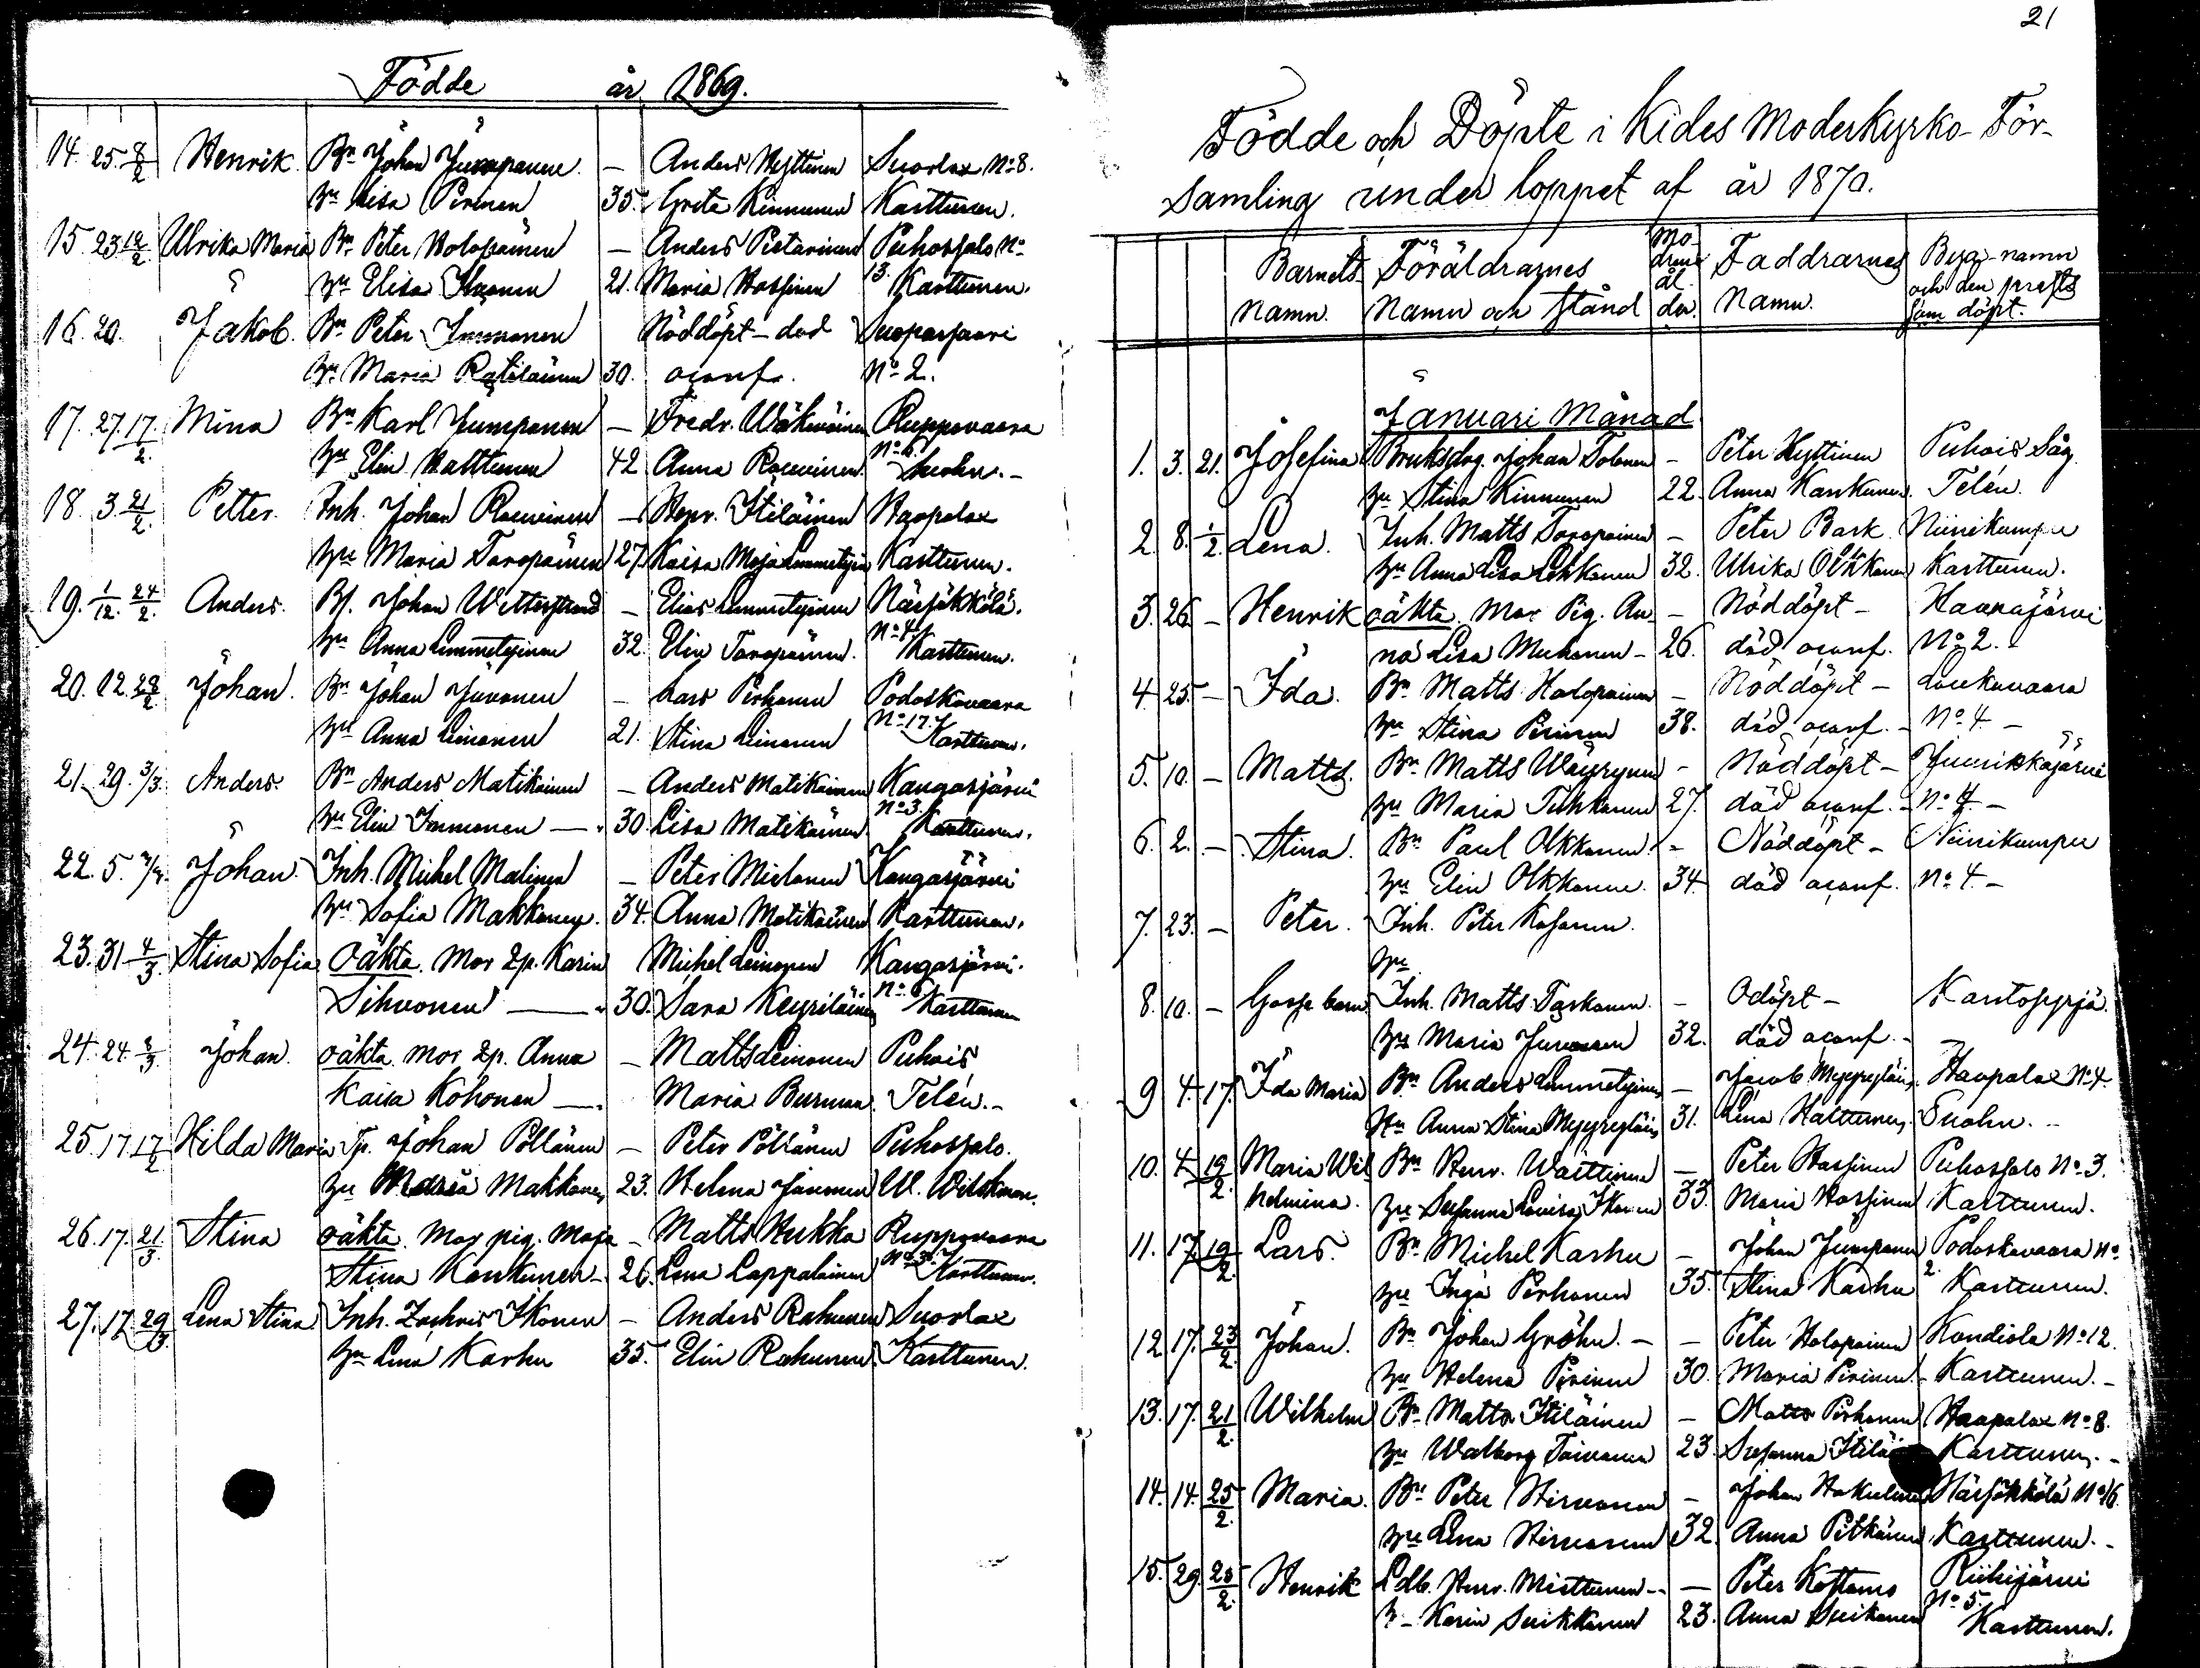 Födde år 1869.
14. 25. 8/2 Henrik. Bn Johan Jumpanen — Anders Hyttinen Suorlax No 8.
hu Lisa Pirinen 35. Greta Kinnunen Karttunen.
15. 23. 12/2 Ulrika Maria Bn Peter Holopainen — Anders Pistarinen Puhossalo No
hu Elisa Ikonen 21. Maria Hassinen 13. Karttunen.
16. 20. Jakob. Bn Peter Immonen Nöddöpt — död Suoparsaari
hu Maria Ratilainen 30. oconf. No 2.
17. 27. 17/2. Mina Bn Karl Jumpanen — Fredr. Wäkeväinen Ruppovaara
hu Elin Hattunen 42 Anna Rouvinen No 6. Suohn. -
18. 3 21/2. Petter Inh. Johan Rouvinen — Henr. Itiläinen Haapalax
hu Maria Toropainen 27. Kaisa Maja Lommetyinen Karttunen.
19. 1/12. 24/2. Anders. Bs. Johan Wetterstrand — Elias Lommetyinen Närsäkkälä.
hu Anna Lommetyinen 32. Elin Toropainen. No 4. Karttunen.
20. 12. 28/2 Johan. Bn Johan Juvonen — Lars Pirhonen Podoskavaara
hu Anna Leinonen 21. Stina Leinonen No 17. Karttunen.
21. 29. 3/3. Anders. Bn Anders Matikainen — Anders Matikainen Kangasjärvi
hu Elin Immonen — 30. Lisa Matikainen No 3. Karttunen.
22. 5. Johan. Inh. Michel Malinen — Peter Mielonen Kangasjärvi
hu Sofia Makkonen. 34. Anna Matikainen Karttunen.
23. 31 4/3. Stina Sofia Oäkta. Mor Lp. Karin Michel Leinonen Kangasjärvi.
Sihvonen — 30. Sara Keyriläinen No 6. Karttunen
24. 24. 8/3. Johan. oäkta. Mor Lp. Anna — Matts Leinonen Puhois
Kaisa Kohonen — Maria Burman. Telén. -
25. 17 17/2 Hilda Maria Tp. Johan Pöllänen — Peter Pöllänen Puhossalo.
hu Maria Makkonen 23. Helena Juvonen W. Wilskman.
26. 17. 21/3. Stina oäkta. Mor pig. Maja - Matts Hukka Ruppovaara
Stina Kankunen - 26. Lena Lappalainen No 3. Karttunen.
27. 17. 29/3. Lena Stina. Inh. Zachris Ikonen — Anders Rahunen Suorlax
hu Lena Karhu 35. Elin Rahunen. Karttunen.
21
Födde och Döpte i Kides Moderkyrko-För-
samling under loppet af år 1870.
Barnets Namn. Föräldrarnes Namn och stånd Modrens ålder. Faddrarnes Namn. Byanamn och den prests som döpt.
Januari Månad
1. 3. 21. Josefina Bruksdrg. Johan Tolonen — Peter Hyttinen Puhois Såg
hu Stina Kinnunen 22. Anna Kankunen. Telén.
2. 8. 1/2. Lena. Inh. Matts Toropainen — Peter Bask Niinikumpu
hu Anna Lisa Lehkonen 32. Ulrika Olkkonen Karttunen.
3. 26. — Henrik oäkta. Mor Pig. An- — Nöddöpt — Haarajärvi
na Lisa Muhonen - 26. död oconf. No 2.
4. 25. — Ida. Bn Matts Holopainen — Nöddöpt — Loukuvaara
hu Stina Pirinen 38. död oconf. - No 4 -
5. 10. — Matts. Bn Matts Wäyrynen - Nöddöpt — Juurikkajärvi
hu Maria Tuhkanen 27. död oconf. - No 4 -
6. 2. — Stina. Bn Paul Olkkonen. - Nöddöpt — Niinikumpu
hu Elin Olkkonen. 34. död oconf. No 4 -
7. 23. — Peter. Inh. Peter Kosonen.
hu
8. 10. — Gosse barn Inh. Matts Taskanen. - Odöpt — Kantosyrjä.
hu Maria Juvonen 32. död oconf. -
9 4. 17. Ida Maria Bn Anders Lommetyinen — Jacob Myyryläin. Haapalax No 4
hu Anna Stina Myyryläin. 31. Lena Hattunen. Suohn. -
10. 4 19/2. Maria Wil- Bn Henr. Waittinen — Peter Hassinen Puhossalo No 3.
helmina. hu Susanna Lovisa Ikonen 33. Maria Hassinen Karttunen.
11. 17 19/2. Lars. Bn Michel Karhu — Johan Jumpanen Podoskavaara No
hu Inga Pirhonen 35. Stina Karhu 2. Karttunen.
12. 17. 23/2. Johan. Bn Johan Gröhn. - — Peter Holopainen Kondiola No 12.
hu Helena Pirinen 30. Maria Pirinen. Karttunen. -
13. 17. 21/2. Wilhelm Bn Matts Itiläinen — Matts Pirhonen Haapalax No 8.
hu Walborg Toivanen 23. Susanna Itilä Karttunen. -
14. 14. 25/2. Maria. Bn Peter Hirvonen — Johan Hakulinen Närsäkkälä No 16.
hu Lena Hirvonen 32. Anna Pitkänen Karttunen. -
15. 29. 25/2. Henrik Ldb. Henr. Miettunen - — Peter Kostamo Riihijärvi
h - Karin Suikkanen 23. Anna Suikanen No 5. Karttunen.